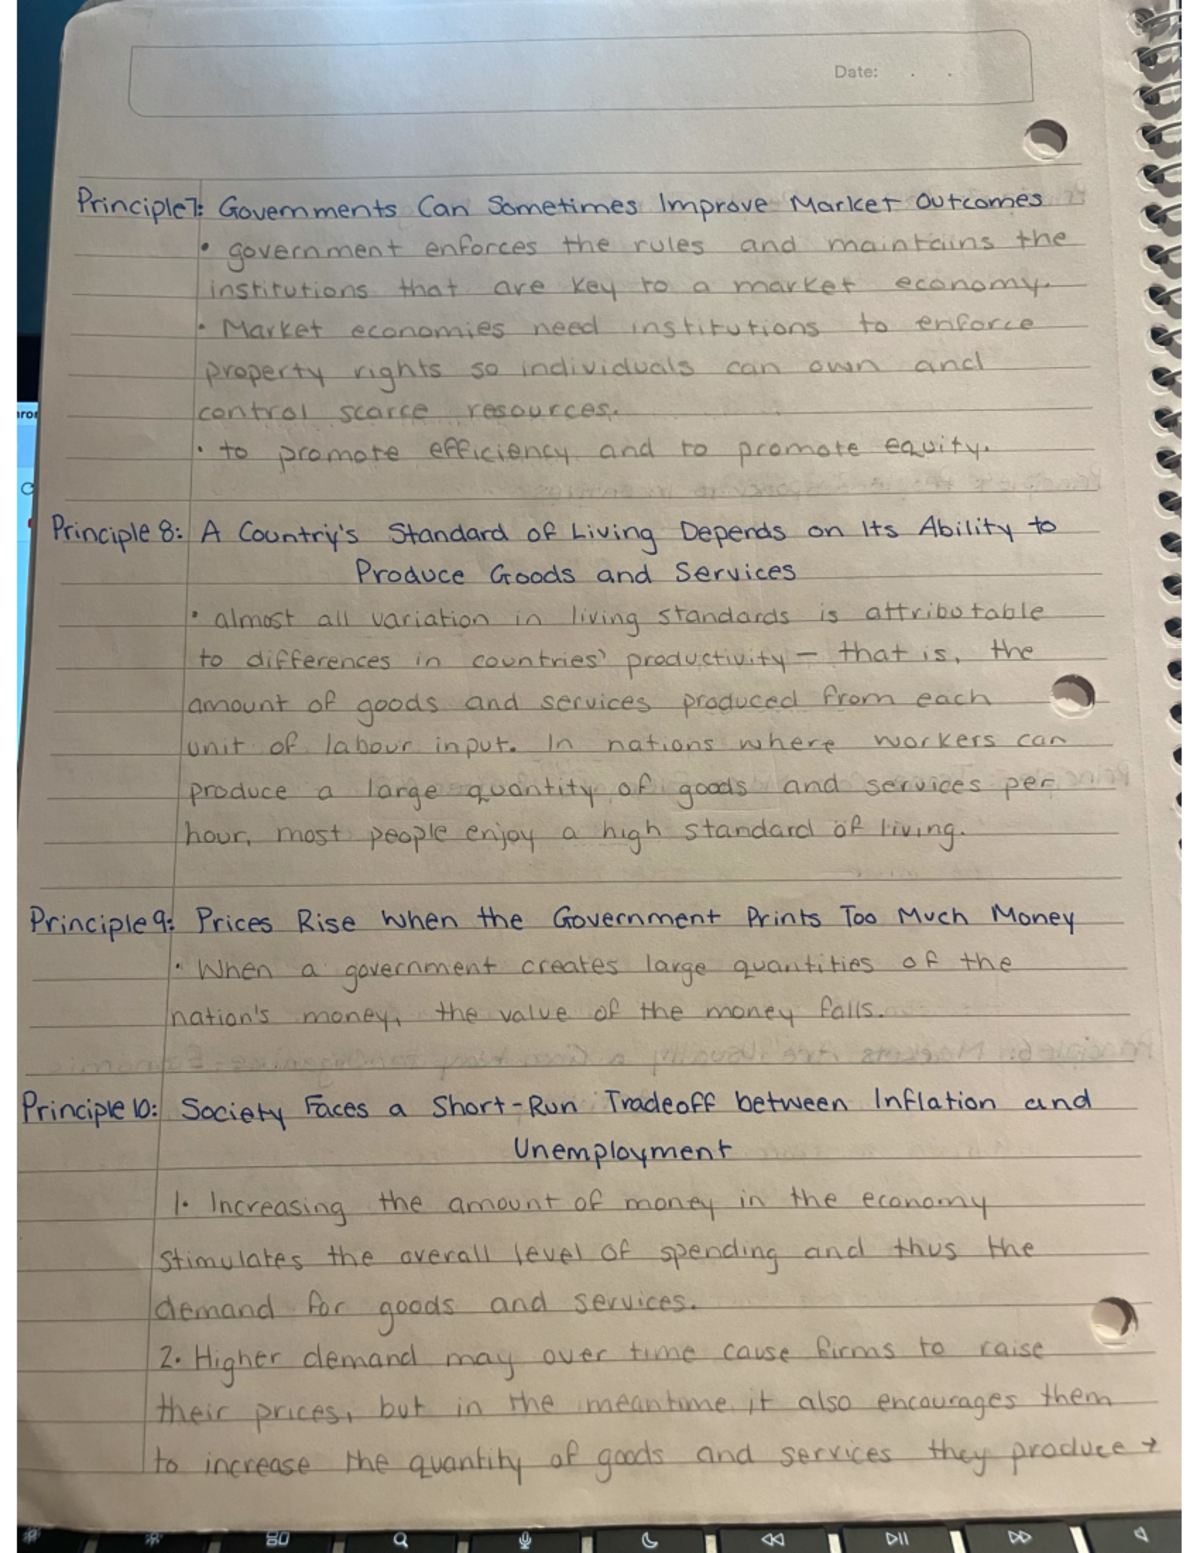 Date: . .
Principle 7: Governments Can Sometimes Improve Market Outcomes
• government enforces the rules and maintains the
institutions that are key to a market economy.
• Market economies need institutions to enforce
property rights so individuals can own and
control scarce resources.
• to promote efficiency and to promote equity.
Principle 8: A Country's Standard of Living Depends on Its Ability to
Produce Goods and Services
• almost all variation in living standards is attributable
to differences in countries' productivity – that is, the
amount of goods and services produced from each
unit of labour input. In nations where workers can
produce a large quantity of goods and services per
hour, most people enjoy a high standard of living.
Principle 9: Prices Rise When the Government Prints Too Much Money
• When a government creates large quantities of the
nation's money, the value of the money falls.
Principle 10: Society Faces a Short-Run Tradeoff between Inflation and
Unemployment
1. Increasing the amount of money in the economy
stimulates the overall level of spending and thus the
demand for goods and services.
2. Higher demand may over time cause firms to raise
their prices, but in the meantime, it also encourages them
to increase the quantity of goods and services they produce →